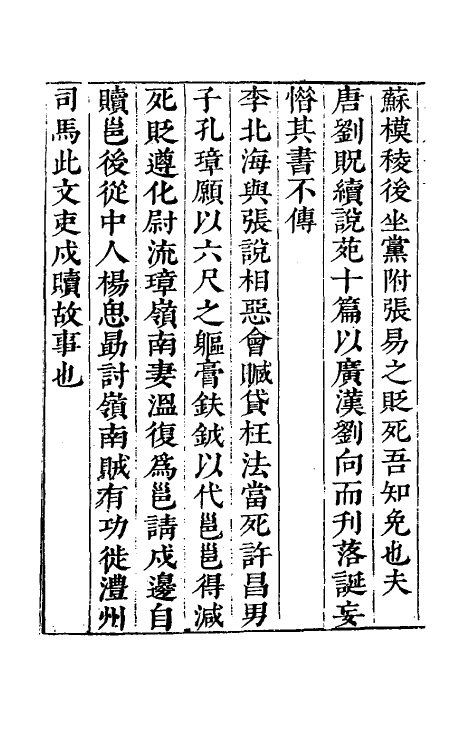 蘇模稜後坐黨附張易之貶死吾知免也夫
唐劉貺續說苑十篇以廣漢劉向而刋落誕妄
惜其書不傳
李北海與張說相惡會贓貸枉法當死許昌男
子孔璋願以六尺之軀膏鈇鉞以代邕邕得減
死貶遵化尉流璋嶺南妻溫復爲邕請戍邊自
贖邕後從中人楊思勗討嶺南賊有功徙澧州
司馬此文吏戍贖故事也